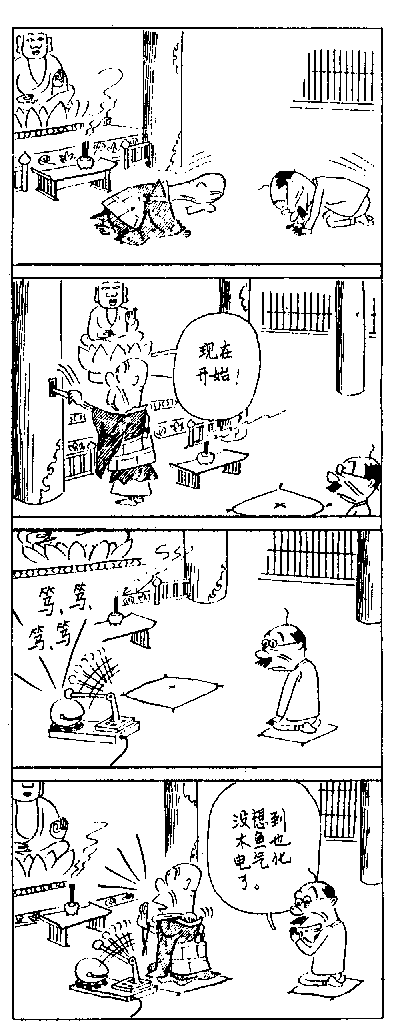 现在
开始！
笃、笃、
笃、笃
没想到
木鱼也
电气化
了。